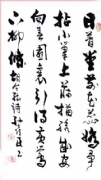 日暮堂前花蕊嬌爭
拈小筆上床描繡成安
向春園裏引得黃鶯
下柳條 胡令能詩